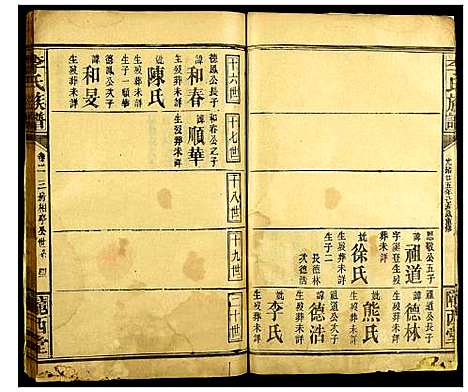 李氏族譜
光緒廿五年己亥歲重修
隴西堂
思敬公五子
諱祖道
字誕登生歿
葬未詳
妣徐氏
生歿葬未詳
生子二
長德林
次德浩
祖道公長子
諱德林
生歿葬未詳
妣熊氏
生歿葬未詳
祖道公次子
諱德浩
生歿葬未詳
妣李氏
生歿葬未詳
十六世
十七世
十八世
十九世
二十世
德鳳公長子
諱和春
生歿葬未詳
妣陳氏
生歿葬未詳
生子一順華
德鳳公次子
諱和旻
生歿葬未詳
和春公之子
諱順華
生歿葬未詳
李氏族譜
卷二
三房相亭公世系
隴西堂